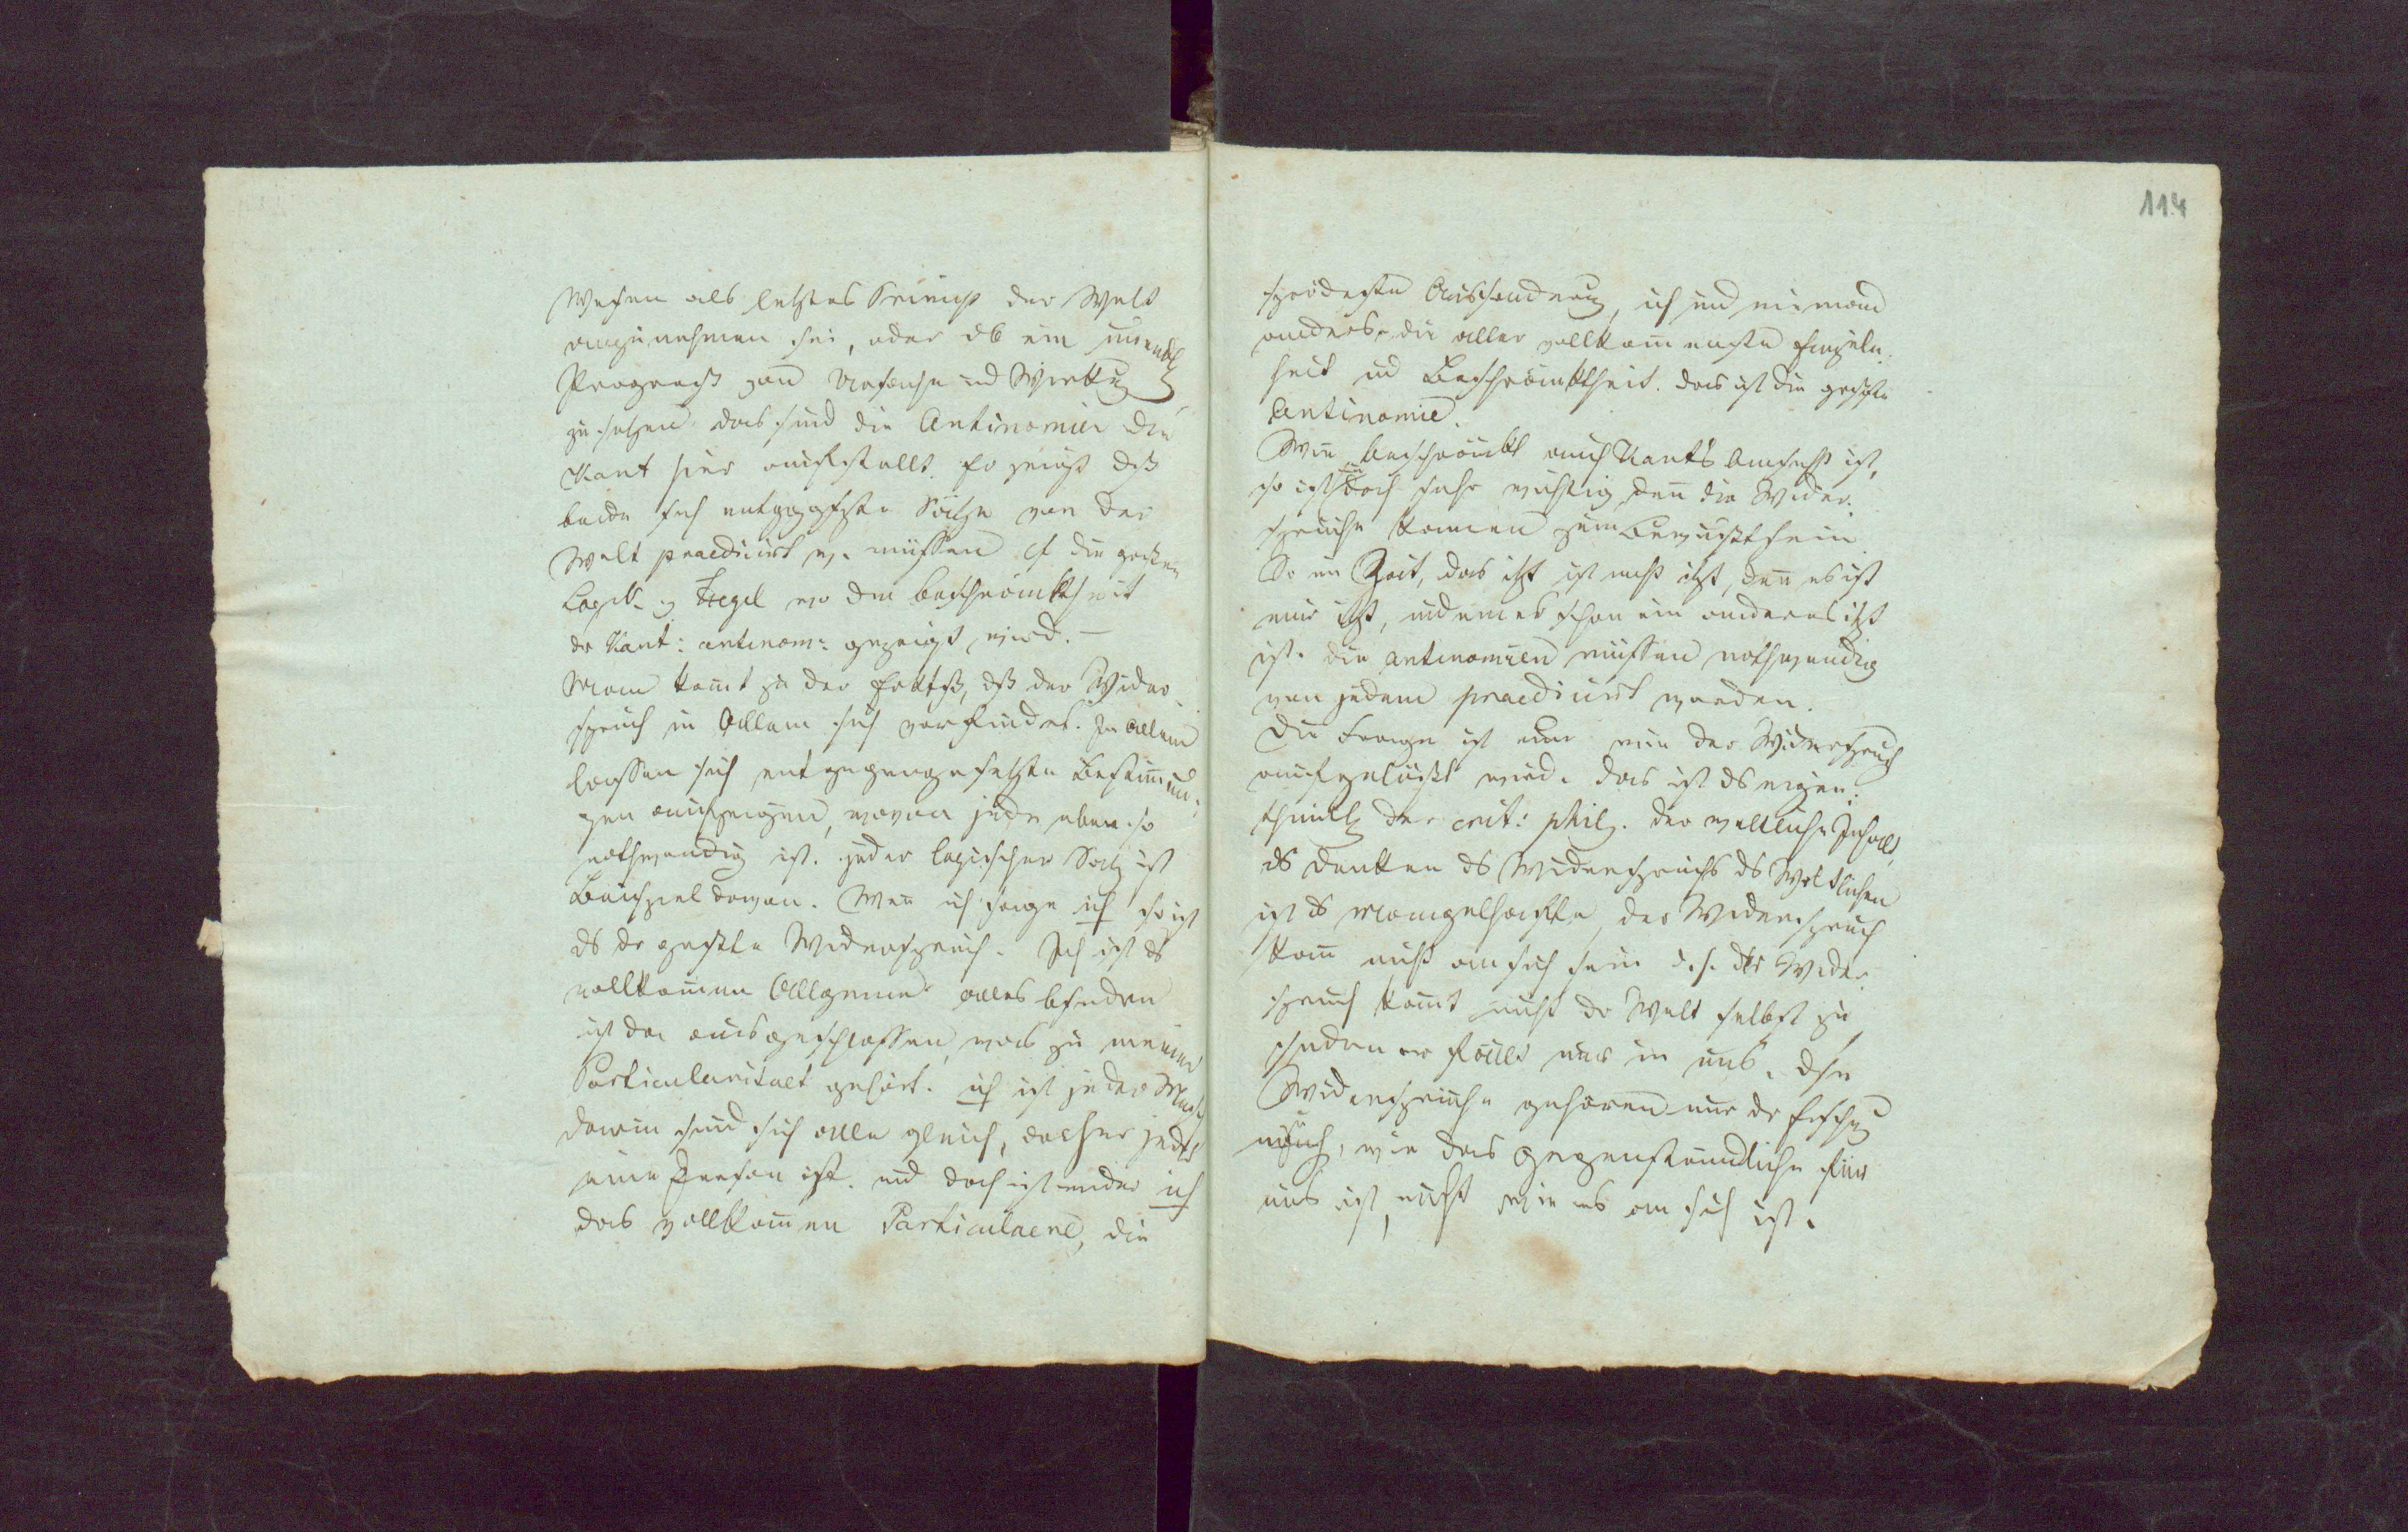 Wesen als letztes Princip der Welt
anzunehmen sei, oder ob ein unendl
Progress von Ursache und Wirkung
zu setzen. das sind die Antinomien die
Kant hier aufstellt. Er zeigt daß
beide sich entgggstzte Sätze von der
Welt praedicirt w. müssen cf die großen
Logik v Hegel wo die beschränktheit
dr Kant: antinom: gezeigt wird. —
Man kommt zu der, dß der Wider
spruch in Allem sich vorfindet. In allem
lassen sich entgegengesetzte Bestimmun-
gen aufzeigen, wovon jede eben so
nothwendig ist. jeder logischer Satz ist
Beispiel davon. Wenn ich sage ich so ist
ds dr größte Widerspruch. Ich ist ds
vollkommen Allgemeine alles bsondre
ist da ausgeschlossen, was zu meiner
Particularitaet gehört. ich ist jeder Mensch
darin sind sich alle gleich, daher jeder
eine Person ist. und doch ist wieder ich
das vollkommen Particulaere, die
sprödeste Aussonderung, ich und niemand
anders, die aller vollkommenste Einzeln-
heit ud Beschränktheit. das ist die größte
Antinomie.
Wie beschränkt auch Kant's Ansicht ist,
so ist sie doch sehr wichtig, denn die Wider-
sprüche kommen zum Bewußtsein
So in Zeit, das itzt ist nicht itzt, denn es ist
nur itzt, indem es schon ein anderes itzt
ist. die antinomien müssen nothwendig
von jedem praedicirt werden.
Die Frage ist nur wie der Widerspruch
aufgelöst wird. das ist ds eigen-
thüml der crit: phil. der weltliche Inhalt,
ds Denken ds Widerspruchs ds Weltlichen
ist ds Mangelhafte, der Widerspruch
kann nicht an sich sein d.h. der Wider-
spruch kommt nicht dr Welt selbst zu
sondern er fällt nur in uns. dse
Widersprüche gehören nur dr Erschg
an, wie das Gegenständliche für
uns ist, nicht wie es an sich ist.
114